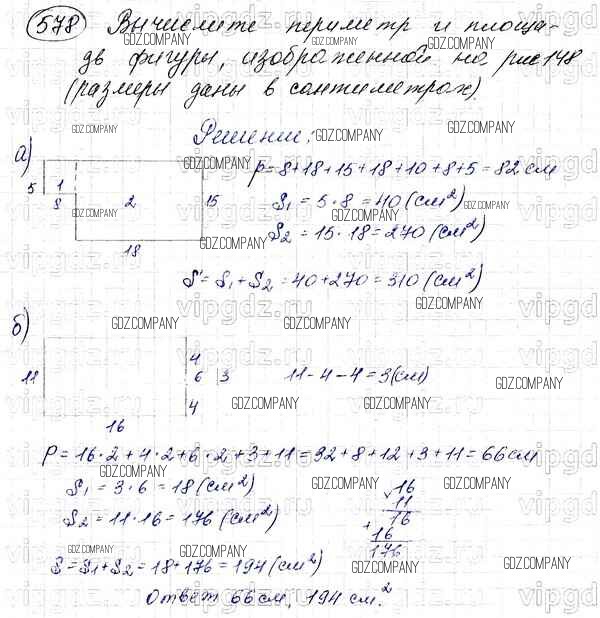 578 Вычислите периметр и площа-
дь фигуры, изображенной на рис 148
(размеры даны в сантиметрах).
Решение:
а)
5 1
8 2 15
18
P=8+18+15+18+10+8+5=82 см
S1 = 5·8=40 (см²)
S2 = 15·18=270 (см²)
S = S1+S2 = 40+270=310 (см²)
б)
11 4
6 3
4
16
11-4-4=3(см)
P = 16·2+4·2+6·2+3+11=32+8+12+3+11=66см
S1 = 3·6=18 (см²)
S2 = 11·16=176 (см²)
S = S1+S2 = 18+176 = 194 (см²)
16
11
16
+
16
176
Ответ 66 см, 194 см²
GDZ.COMPANY
vipgdz.ru